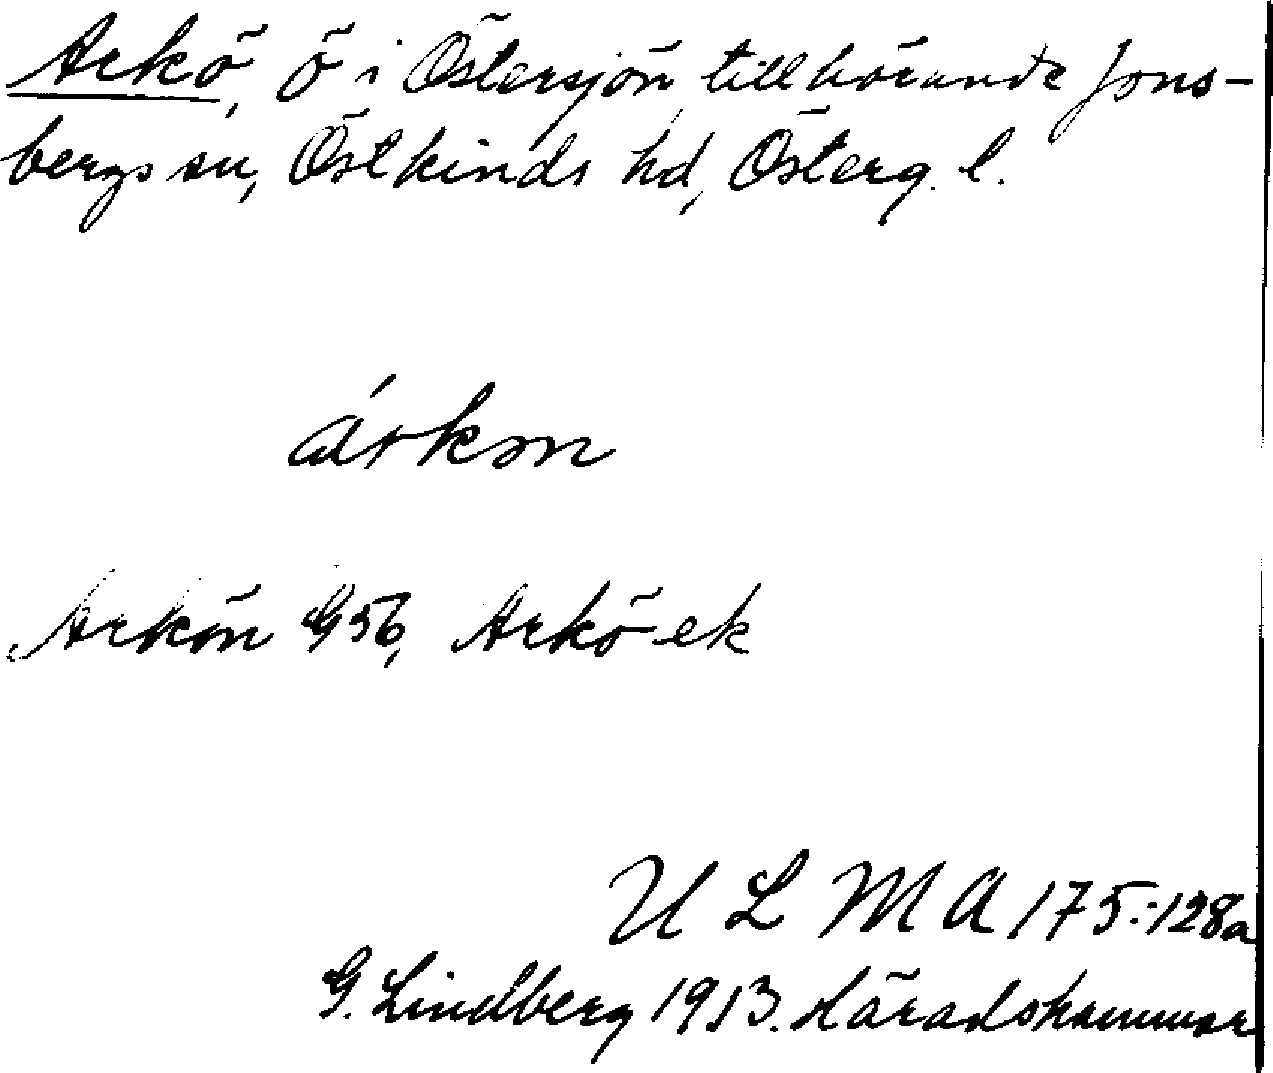 Arkö, ö i Östersjön, tillhörande Jons-
bergs sn, Östkinds hd, Österg. l.
árkɔn
Arkön G56, Arkö-ek
U L M A 175:128a
G. Lindberg 1913. Häradshammar